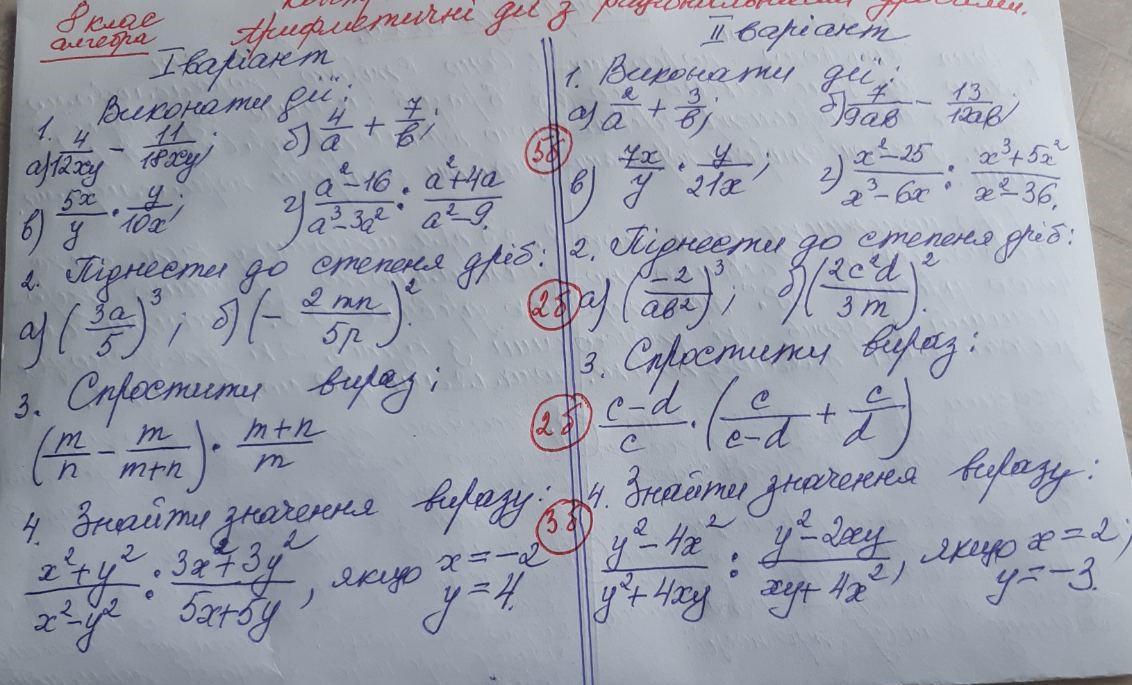 8 клас
алгебра
Арифметичні дії з раціональними дробами.
I варіант
1. Виконати дії:
а) 4/12xy - 11/18xy; б) 4/a + 7/b;
в) 5x/y · y/10x; г) a²-16/a³-3a² : a²+4a/a²-9.
2. Піднести до степеня дріб:
а) (3a/5)³; б) (- 2mn/5p)².
3. Спростити вираз:
(m/n - m/m+n) · m+n/m
4. Знайти значення виразу:
x²+y²/x²-y² : 3x²+3y²/5x+5y, якщо x=-2
y=4.
5б
2б
2б
3б
II варіант
1. Виконати дії:
а) 2/a + 3/b; б) 7/9ab - 13/12ab;
в) 7x/y · y/21x; г) x²-25/x³-6x : x³+5x²/x²-36.
2. Піднести до степеня дріб:
а) (-2/ab²)³; б) (2c²d/3m)².
3. Спростити вираз:
c-d/c · (c/c-d + c/d)
4. Знайти значення виразу:
y²-4x²/y²+4xy : y²-2xy/xy+4x², якщо x=2;
y=-3.